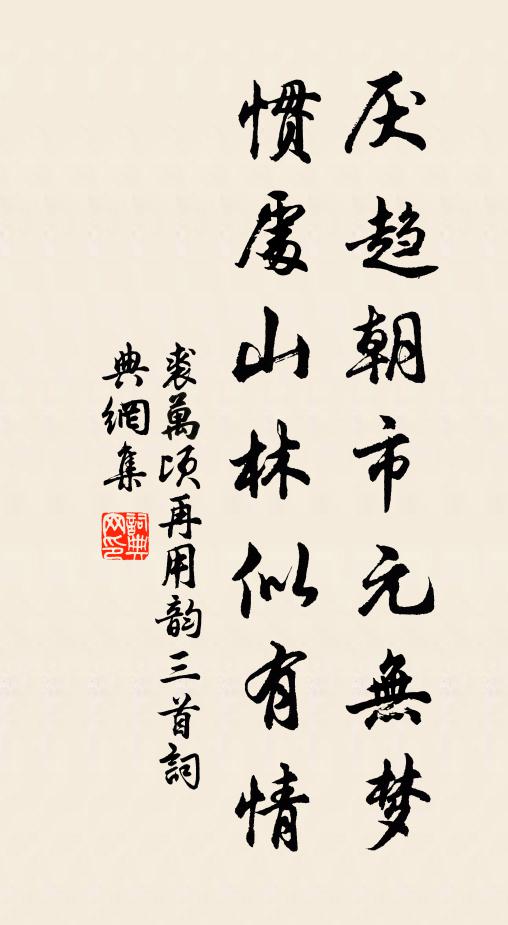 厌趋朝市元無梦
慣處山林似有情
裘萬頃再用韵三首詞
典網集
詞典網印